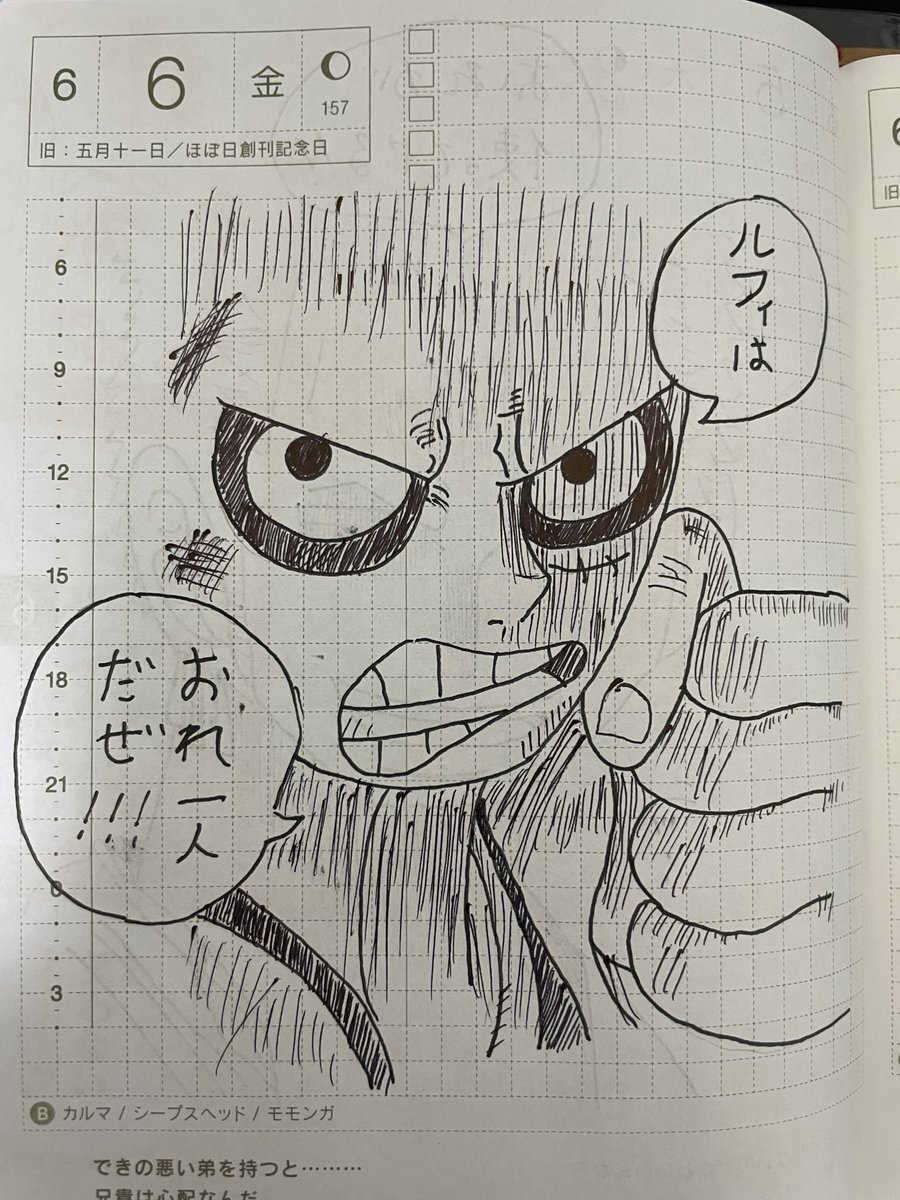 6 6 金
157
旧：五月十一日／ほぼ日創刊記念日
ルフィは
おれ一人
だぜ!!!
6
9
12
15
18
21
0
3
B カルマ / シープスヘッド / モモンガ
できの悪い弟を持つと………
兄貴は心配なんだ